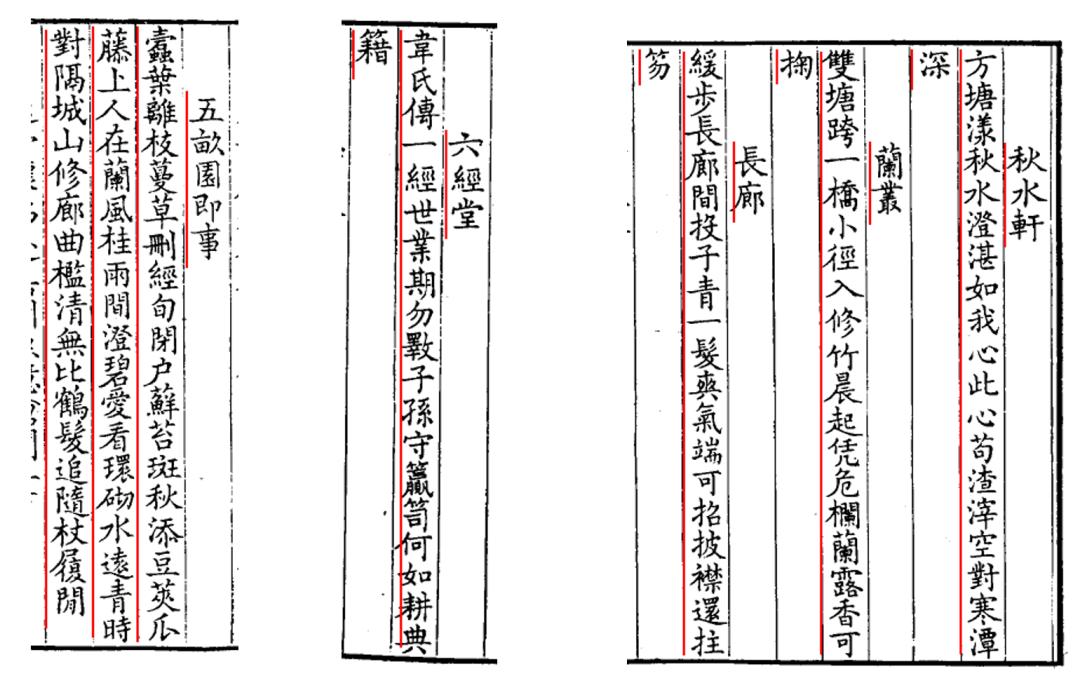 秋水軒
方塘漾秋水澄湛如我心此心苟渣滓空對寒潭
深
蘭叢
雙塘跨一橋小徑入修竹晨起凭危欄蘭露香可
掬
長廊
緩步長廊間投子青一髮爽氣端可招披襟還拄
笏
六經堂
韋氏傳一經世業期勿斁子孫守籯笥何如耕典
籍
五畝園即事
蠹葉離枝蔓草刪經旬閉户蘚苔斑秋添豆莢瓜
藤上人在蘭風桂雨間澄碧愛看環砌水遠青時
對隔城山修廊曲檻清無比鶴髮追隨杖屨閒